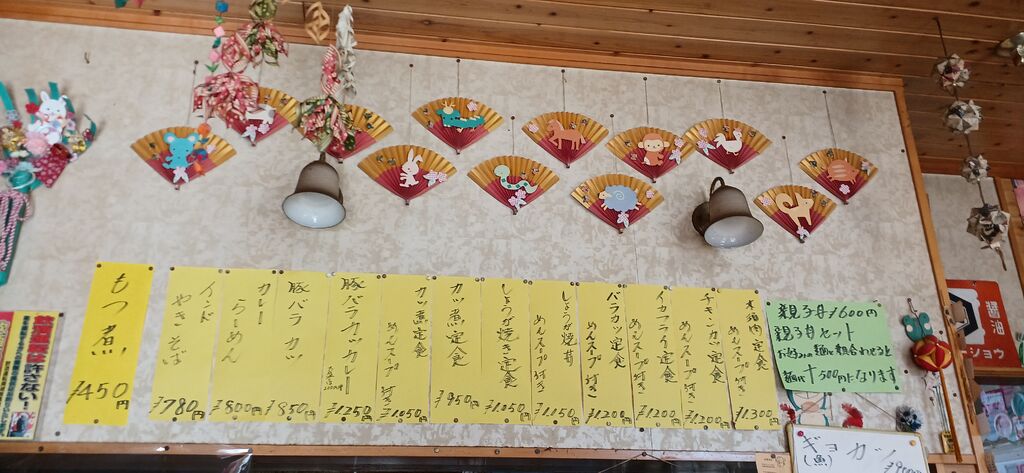 もつ煮
¥450円
インド
やきそば
¥780円
カレー
らーめん
¥800円
豚バラカツ
¥850円
豚バラカツカレー
¥1250円
カツ煮定食
めんスープ付き
¥1,050円
カツ煮定食
¥950円
しょうが焼き定食
¥1,050円
しょうが焼丼
めんスープ付き
¥1,150円
バラカツ定食
めんスープ付き
¥1200円
イカフライ定食
めんスープ付き
¥1,200円
チキンカツ定食
めんスープ付き
¥1,200円
定食
めんスープ付き
¥1,300円
親子丼¥600円
親子丼セット
お好みの麺と組合わせると
麺代+500円になります
ギョカツ
(魚)
醤油
ショウ
は許さない!